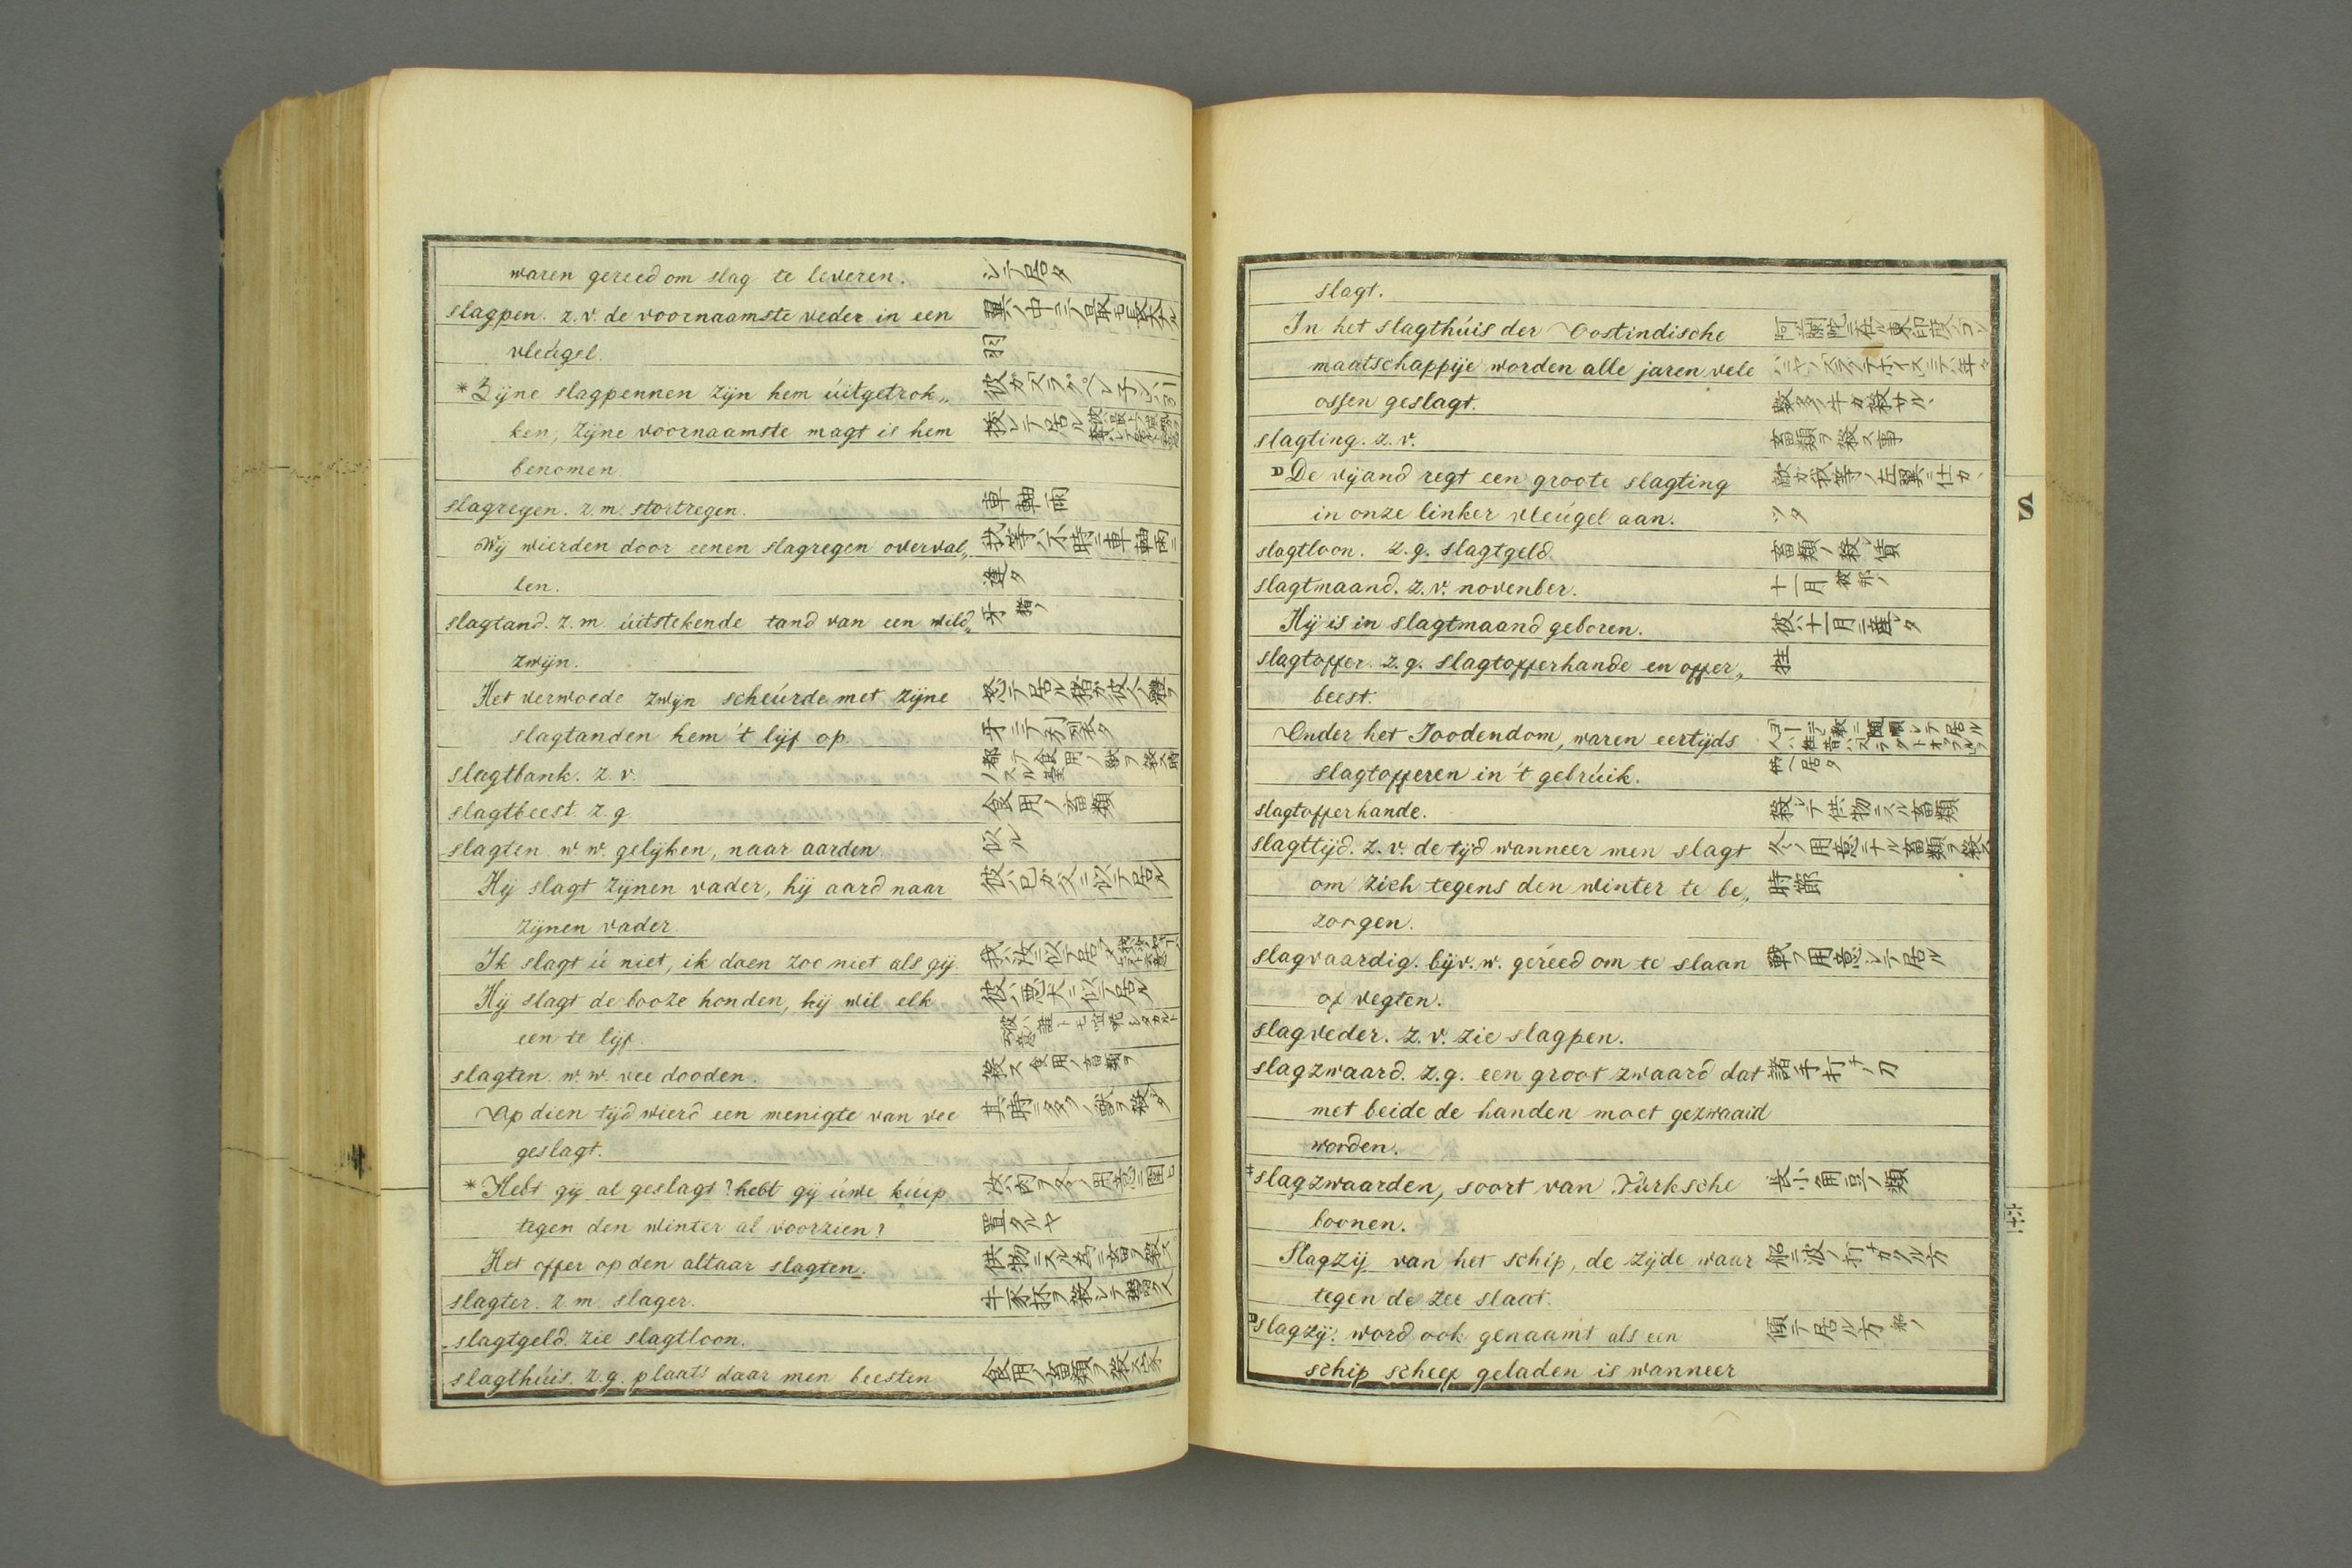 waren gereed om slag te leveren. シテ居タ
slagpen. z. v. de voornaamste veder in een 翼ノ中ニテ最モ長大ナル
vleúgel. 羽
*Zijne slagpennen zijn hem úitgetrok„
ken, zijne voornaamste magt is hem 抜レテ居ル
benomen.
slagregen. z. m. stortregen. 車軸雨
Wij wierden door eenen slagregen overval„ 我等ハ不時ニ車軸雨ニ
len. 逢タ
slagtand. z. m. úitstekende tand van een wild„ 牙 猪ノ
zwijn.
Het verwoede zwijn scheúrde met zijne 怒テ居ル猪ガ彼ノ體ヲ
slagtanden hem 't lijf op. 牙ニテ引裂タ
slagtbank. z. v.
slagtbeest. z. g. 食用ノ畜類
slagten. w. w. gelijken, naar aarden. 似ル
Hij slagt zijnen vader, hij aard naar 彼ハ己ガ父ニ似テ居ル
zijnen vader.
Ik slagt ú niet, ik doen zoo niet als gij.
Hij slagt de booze honden, hij wil elk 彼ハ悪犬ニ似テ居ル
een te lijf.
slagten. w. w. vee dooden. 殺ス 食用ノ畜類ヲ
Op dien tijd wierd een menigte van vee 其時ニ多クノ獣ヲ殺タ
geslagt.
*Hebt gij al geslagt? hebt gij úwe kúip
tegen den winter al voorzien? 置タルヤ
Het offer op den altaar slagten. 供物ニスル為ニ畜ヲ殺ス
slagter. z. m. slager.
slagtgeld. zie slagtloon.
slagthúis. z. g. plaats daar men beesten 食用ノ畜類ヲ殺ス家
slagt.
In het slagthúis der Oostindische 阿蘭陀ニ在ル東印度コン
maatschappije worden alle jaren vele
ossen geslagt. 數多ノ牛ガ殺サルヽ
slagting. z. v. 畜類ヲ殺ス事
De vijand regt een groote slagting 敵ガ我等ノ左翼ニ仕カヽ
in onze linker vleúgel aan. ツタ
slagtloon. z. g. slagtgeld. 畜類ノ殺シ賃
slagtmaand. z. v. november. 十一月 彼邦ノ
Hij is in slagtmaand geboren. 彼ハ十一月ニ産レタ
slagtoffer. z. g. slagtofferhande en offer„ 牲
beest.
Onder het Joodendom, waren eertijds
slagtofferen in 't gebrúik.
slagtofferhande. 殺シテ供物ニスル畜類
slagttijd. z. v. de tijd wanneer men slagt 冬ノ用意ニナル畜類ヲ殺ス
om zich tegens den winter te be„ 時節
zorgen.
slagvaardig. bijv. w. gereed om te slaan 戰ノ用意シテ居ル
of vegten.
slagveder. z. v. zie slagpen.
slagzwaard. z. g. een groot zwaard dat 諸手打ノ刀
met beide de handen moet gezwaaid
worden.
slagzwaarden, soort van Túrksche 長小角豆ノ類
boonen.
Slagzij van het schip, de zijde waar 船ニ波ノ打カヽル方
tegen de zee slaat.
slagzij. word ook genaamt als een 傾テ居ル方 船ノ
schip scheef geladen is wanneer
S